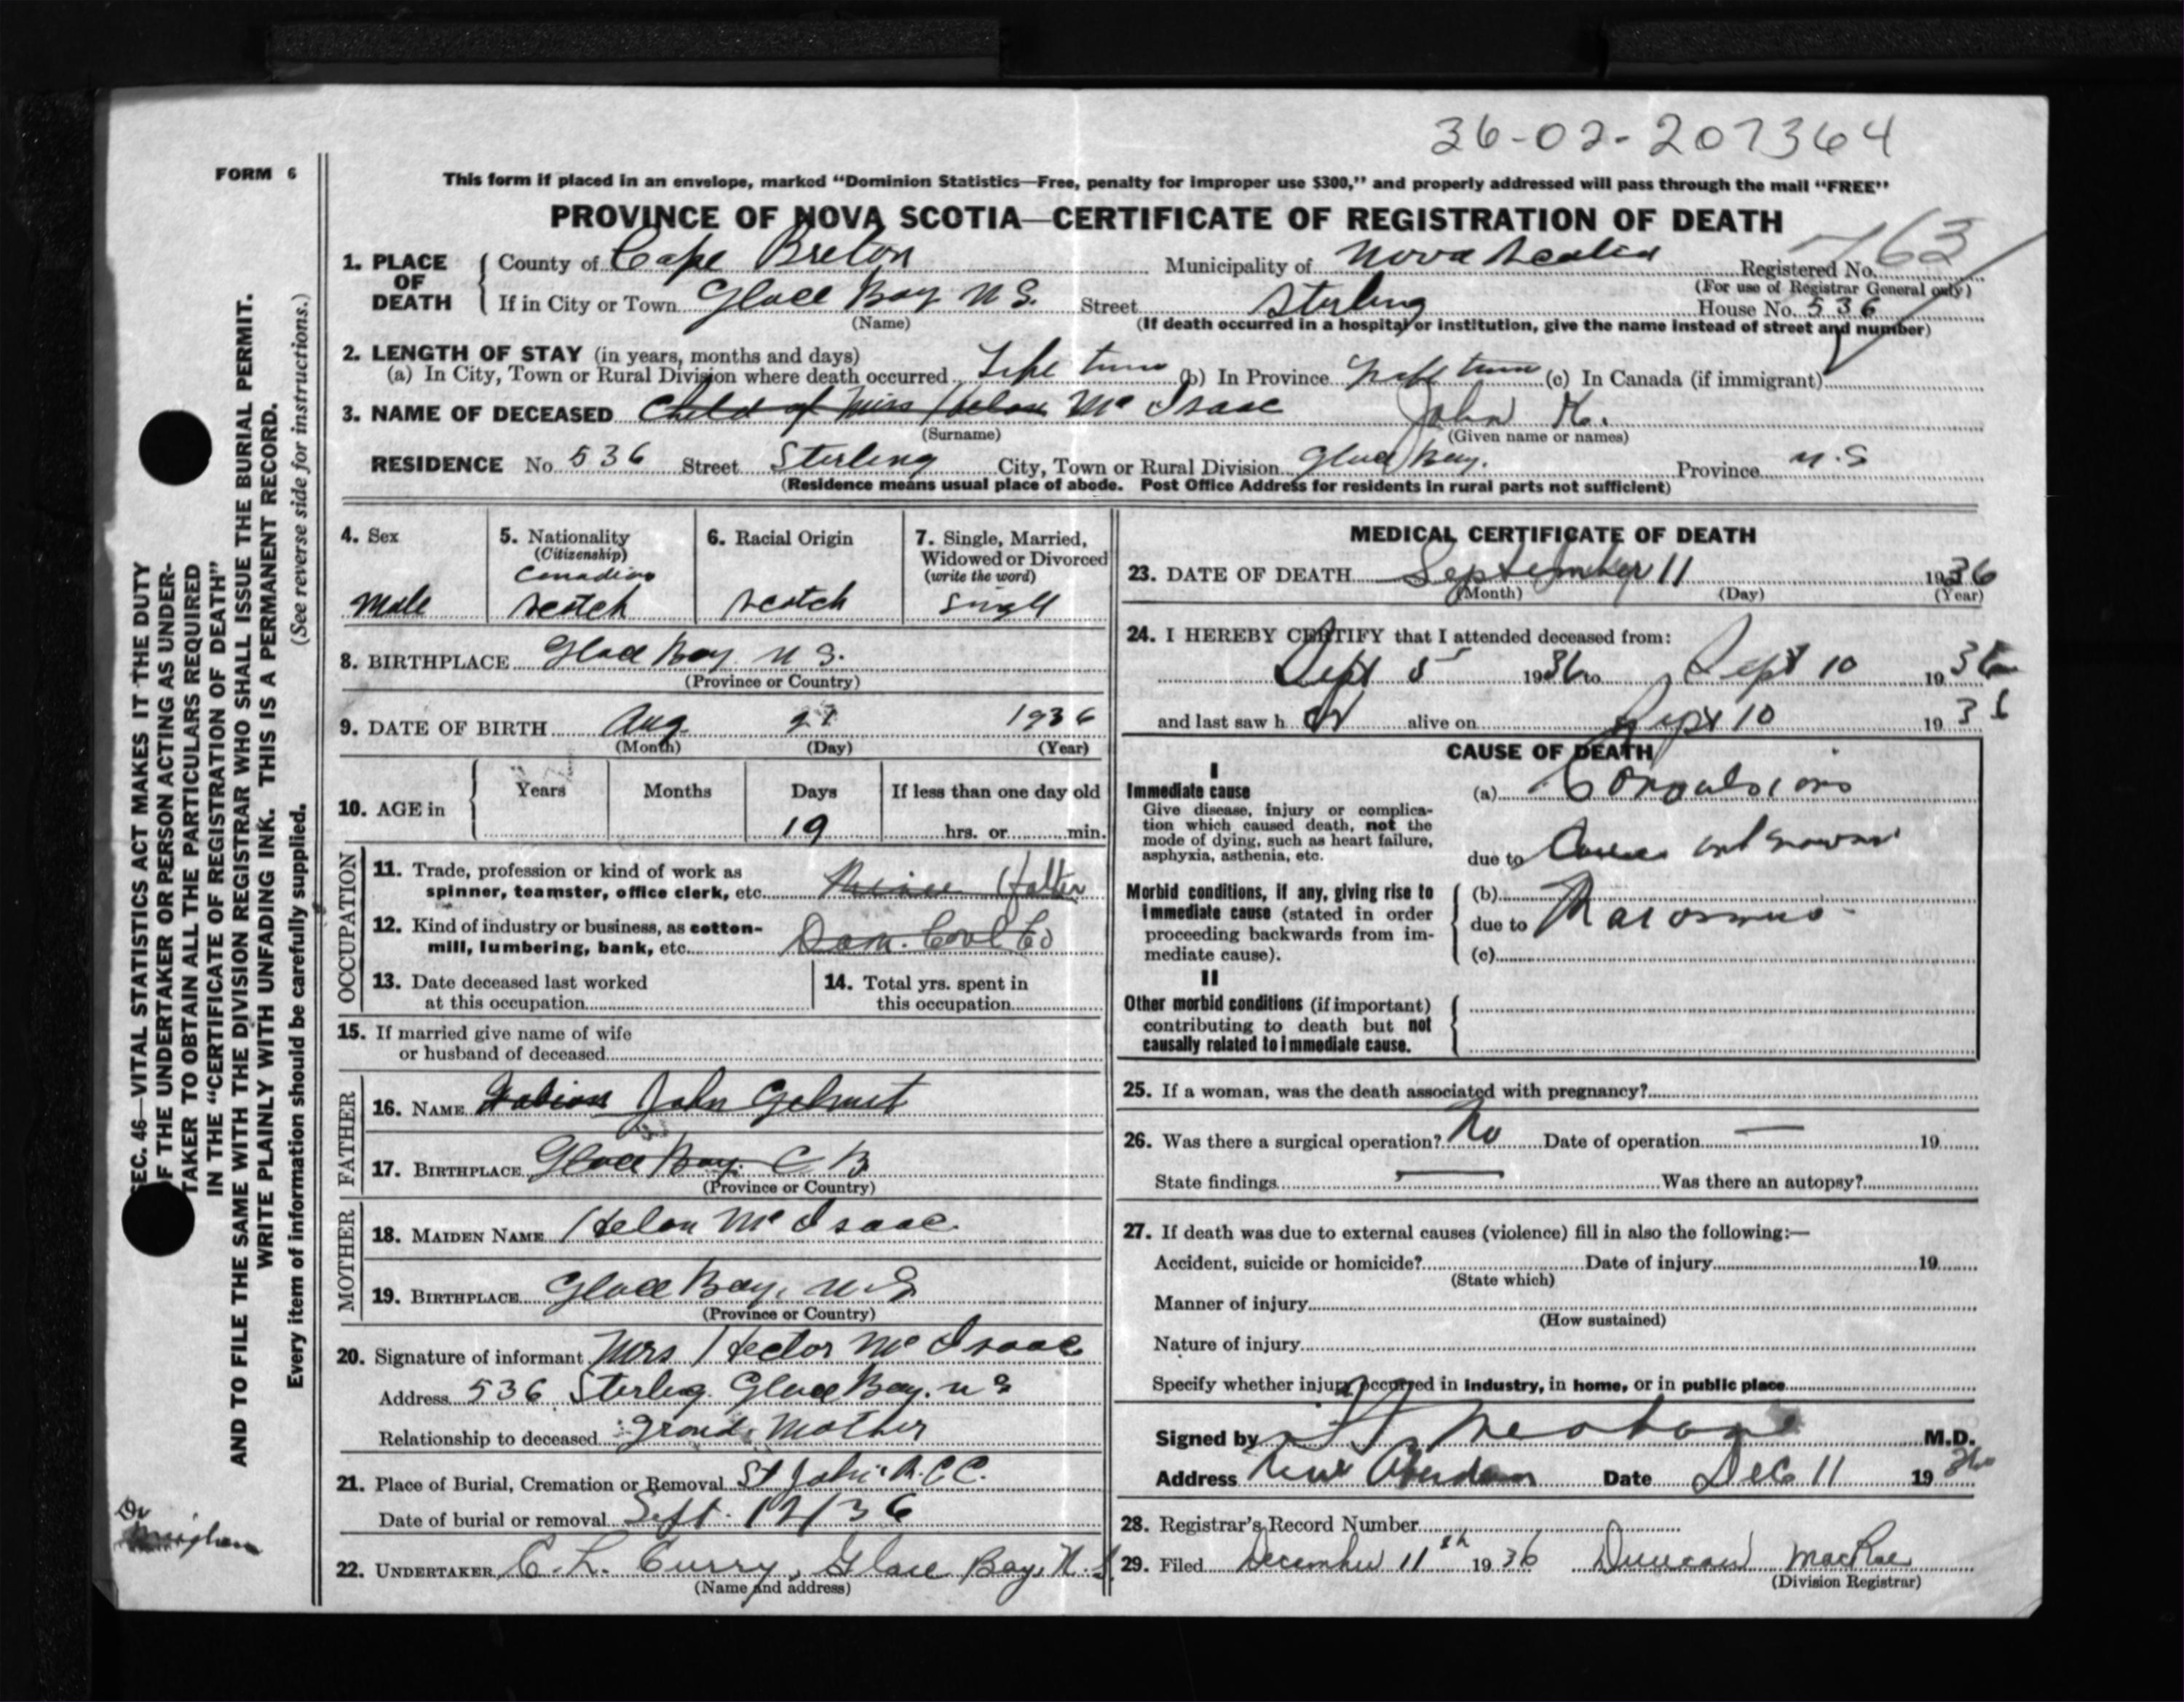 36-02-207364
FORM 6
This form if placed in an envelope, marked “Dominion Statistics—Free, penalty for improper use $300,” and properly addressed will pass through the mail “FREE”
PROVINCE OF NOVA SCOTIA—CERTIFICATE OF REGISTRATION OF DEATH
763
1. PLACE OF DEATH { County of Cape Breton Municipality of Nova Scotia Registered No.
(For use of Registrar General only)
If in City or Town Glace Bay N S. Street Sterling House No. 536
(Name) (If death occurred in a hospital or institution, give the name instead of street and number)
2. LENGTH OF STAY (in years, months and days)
(a) In City, Town or Rural Division where death occurred Life time (b) In Province Life time (c) In Canada (if immigrant)
3. NAME OF DECEASED Child of Miss Helen Mc Isaac John
(Surname) (Given name or names)
RESIDENCE No. 536 Street Sterling City, Town or Rural Division Glace Bay. Province N.S
(Residence means usual place of abode. Post Office Address for residents in rural parts not sufficient)
4. Sex
Male
5. Nationality
(Citizenship)
Canadian
Scotch
6. Racial Origin
Scotch
7. Single, Married,
Widowed or Divorced
(write the word)
Single
8. BIRTHPLACE Glace Bay N S.
(Province or Country)
9. DATE OF BIRTH Aug 1936
(Month) (Day) (Year)
10. AGE in { Years Months Days If less than one day old
19 hrs. or min.
OCCUPATION
11. Trade, profession or kind of work as
spinner, teamster, office clerk, etc.
12. Kind of industry or business, as cotton-
mill, lumbering, bank, etc. Dom. Coal Co
13. Date deceased last worked
at this occupation
14. Total yrs. spent in
this occupation
15. If married give name of wife
or husband of deceased
FATHER
16. NAME John
17. BIRTHPLACE Glace Bay. C B
(Province or Country)
MOTHER
18. MAIDEN NAME Helen Mc Isaac.
19. BIRTHPLACE Glace Bay, N.S
(Province or Country)
20. Signature of informant Mrs Hector Mc Isaac
Address 536 Sterling. Glace Bay. N S
Relationship to deceased Grand Mother
21. Place of Burial, Cremation or Removal St John
Date of burial or removal Sept. 12/36
22. UNDERTAKER C. L. Curry, Glace Bay, N.S.
(Name and address)
MEDICAL CERTIFICATE OF DEATH
23. DATE OF DEATH September 11 1936
(Month) (Day) (Year)
24. I HEREBY CERTIFY that I attended deceased from:
Sept 5 1936 to Sept 10 1936
and last saw h alive on Sept 10 1936
CAUSE OF DEATH
I
Immediate cause
Give disease, injury or complica-
tion which caused death, not the
mode of dying, such as heart failure,
asphyxia, asthenia, etc.
(a) Convulsions
due to Cause unknown
Morbid conditions, if any, giving rise to
immediate cause (stated in order
proceeding backwards from im-
mediate cause).
(b)
due to Marasmus
(c)
II
Other morbid conditions (if important)
contributing to death but not
causally related to immediate cause.
25. If a woman, was the death associated with pregnancy?
26. Was there a surgical operation? No Date of operation — 19
State findings — Was there an autopsy?
27. If death was due to external causes (violence) fill in also the following:—
Accident, suicide or homicide? Date of injury 19
(State which)
Manner of injury
(How sustained)
Nature of injury
Specify whether injury occurred in industry, in home, or in public place
Signed by M.D.
Address New Aberdeen Date Dec 11 1936
28. Registrar's Record Number
29. Filed December 11th 1936 Duncan MacRae
(Division Registrar)
SEC. 46—VITAL STATISTICS ACT MAKES IT THE DUTY
OF THE UNDERTAKER OR PERSON ACTING AS UNDER-
TAKER TO OBTAIN ALL THE PARTICULARS REQUIRED
IN THE “CERTIFICATE OF REGISTRATION OF DEATH”
AND TO FILE THE SAME WITH THE DIVISION REGISTRAR WHO SHALL ISSUE THE BURIAL PERMIT.
WRITE PLAINLY WITH UNFADING INK. THIS IS A PERMANENT RECORD.
Every item of information should be carefully supplied. (See reverse side for instructions.)
Dr